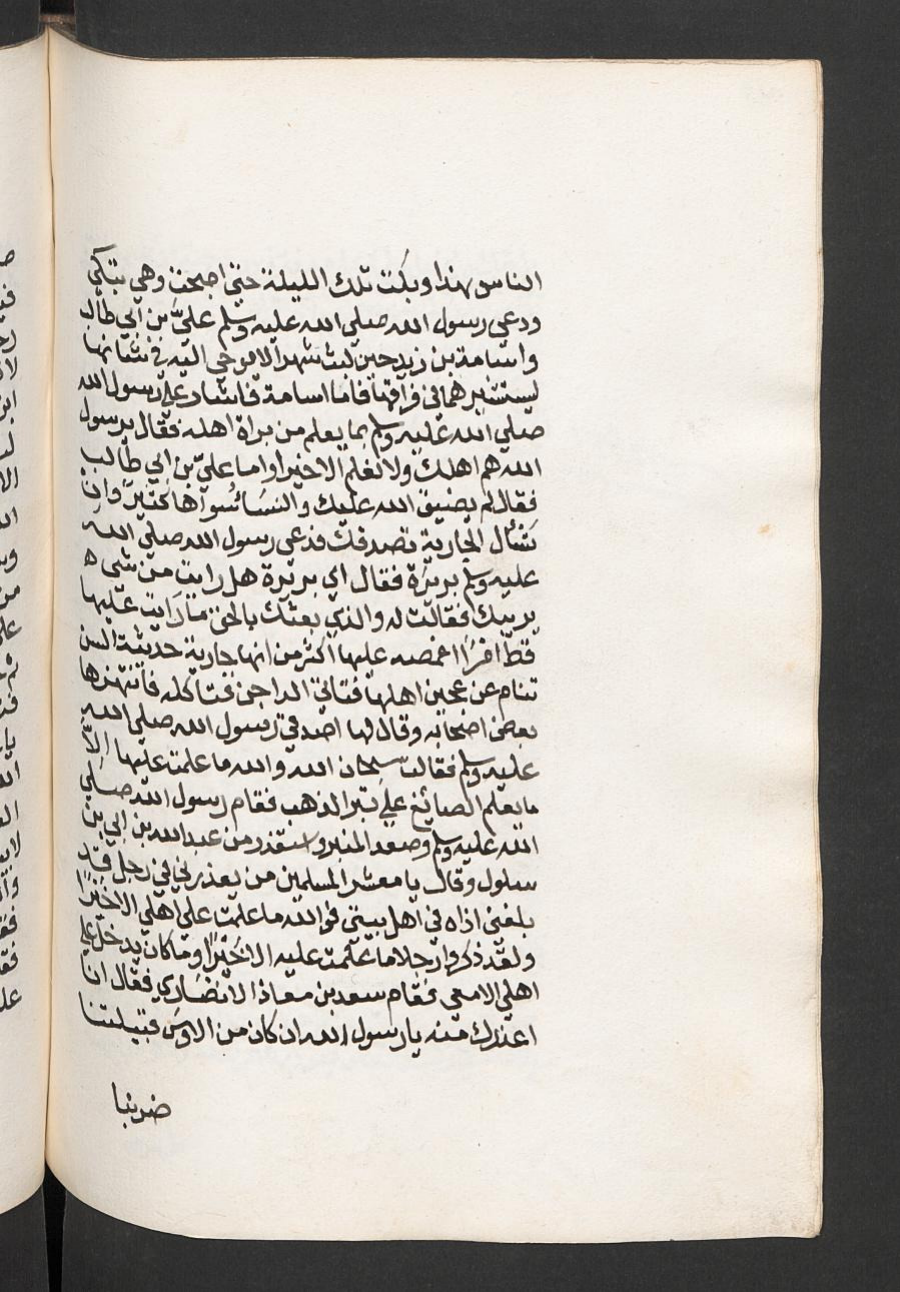 الناس بهذا وبكت تلك الليلة حتى اصبحت وهي تبكي
ودعى رسول الله صلى الله عليه وسلم عليّ بن ابي طالب
واسامة بن زيد حين لبث شهرا لا يوحي اليه في شانها
ليستشيرهما في فراقها فاما اسامة فاشار علي رسول الله
صلي الله عليه وسلم بما يعلم من براة اهله فقال يرسول
الله هم اهلك ولا نعلم الا خيرا واما عليّ بن ابي طالب
فقال لم يضيق الله عليك والنسائسواها كثير وان
تسأل الجارية تصدقك فدعي رسول الله صلي الله
عليه وسلم بريرة فقال اي بريرة هل رايت من شيء
يريبك فقالت له والذي بعثك بالحق ما رايت عليها
قط امرًا اغمصه عليها اكثر من انها جارية حديثة السن
تنام عن عجين اهلها فتاتي الداجن فتاكله فانتهزها
بعض اصحابه وقال لها اصدقي رسول الله صلي الله
عليه وسلم فقالت سبحان الله والله ما علمت عليها الاّ
ما يعلم الصائغ علي تبر الذهب فقام رسول الله صلي
الله عليه وسلم وصعد المنبر واستعذر من عبد الله بن ابي بن
سلول وقال يا معشر المسلمين من يعذرني في رجل قد
بلغني اذاه في اهل بيتي فوالله ما علمت علي اهلي الا خيرًا
ولقد ذكروا رجلا ما علمت عليه الا خيرًا وما كان يدخل علي
اهلي الا معي فقام سعد بن معاذ الانصاري فقال انا
اعذرك منه يا رسول الله ان كان من الاوس قبيلتنا
ضربنا